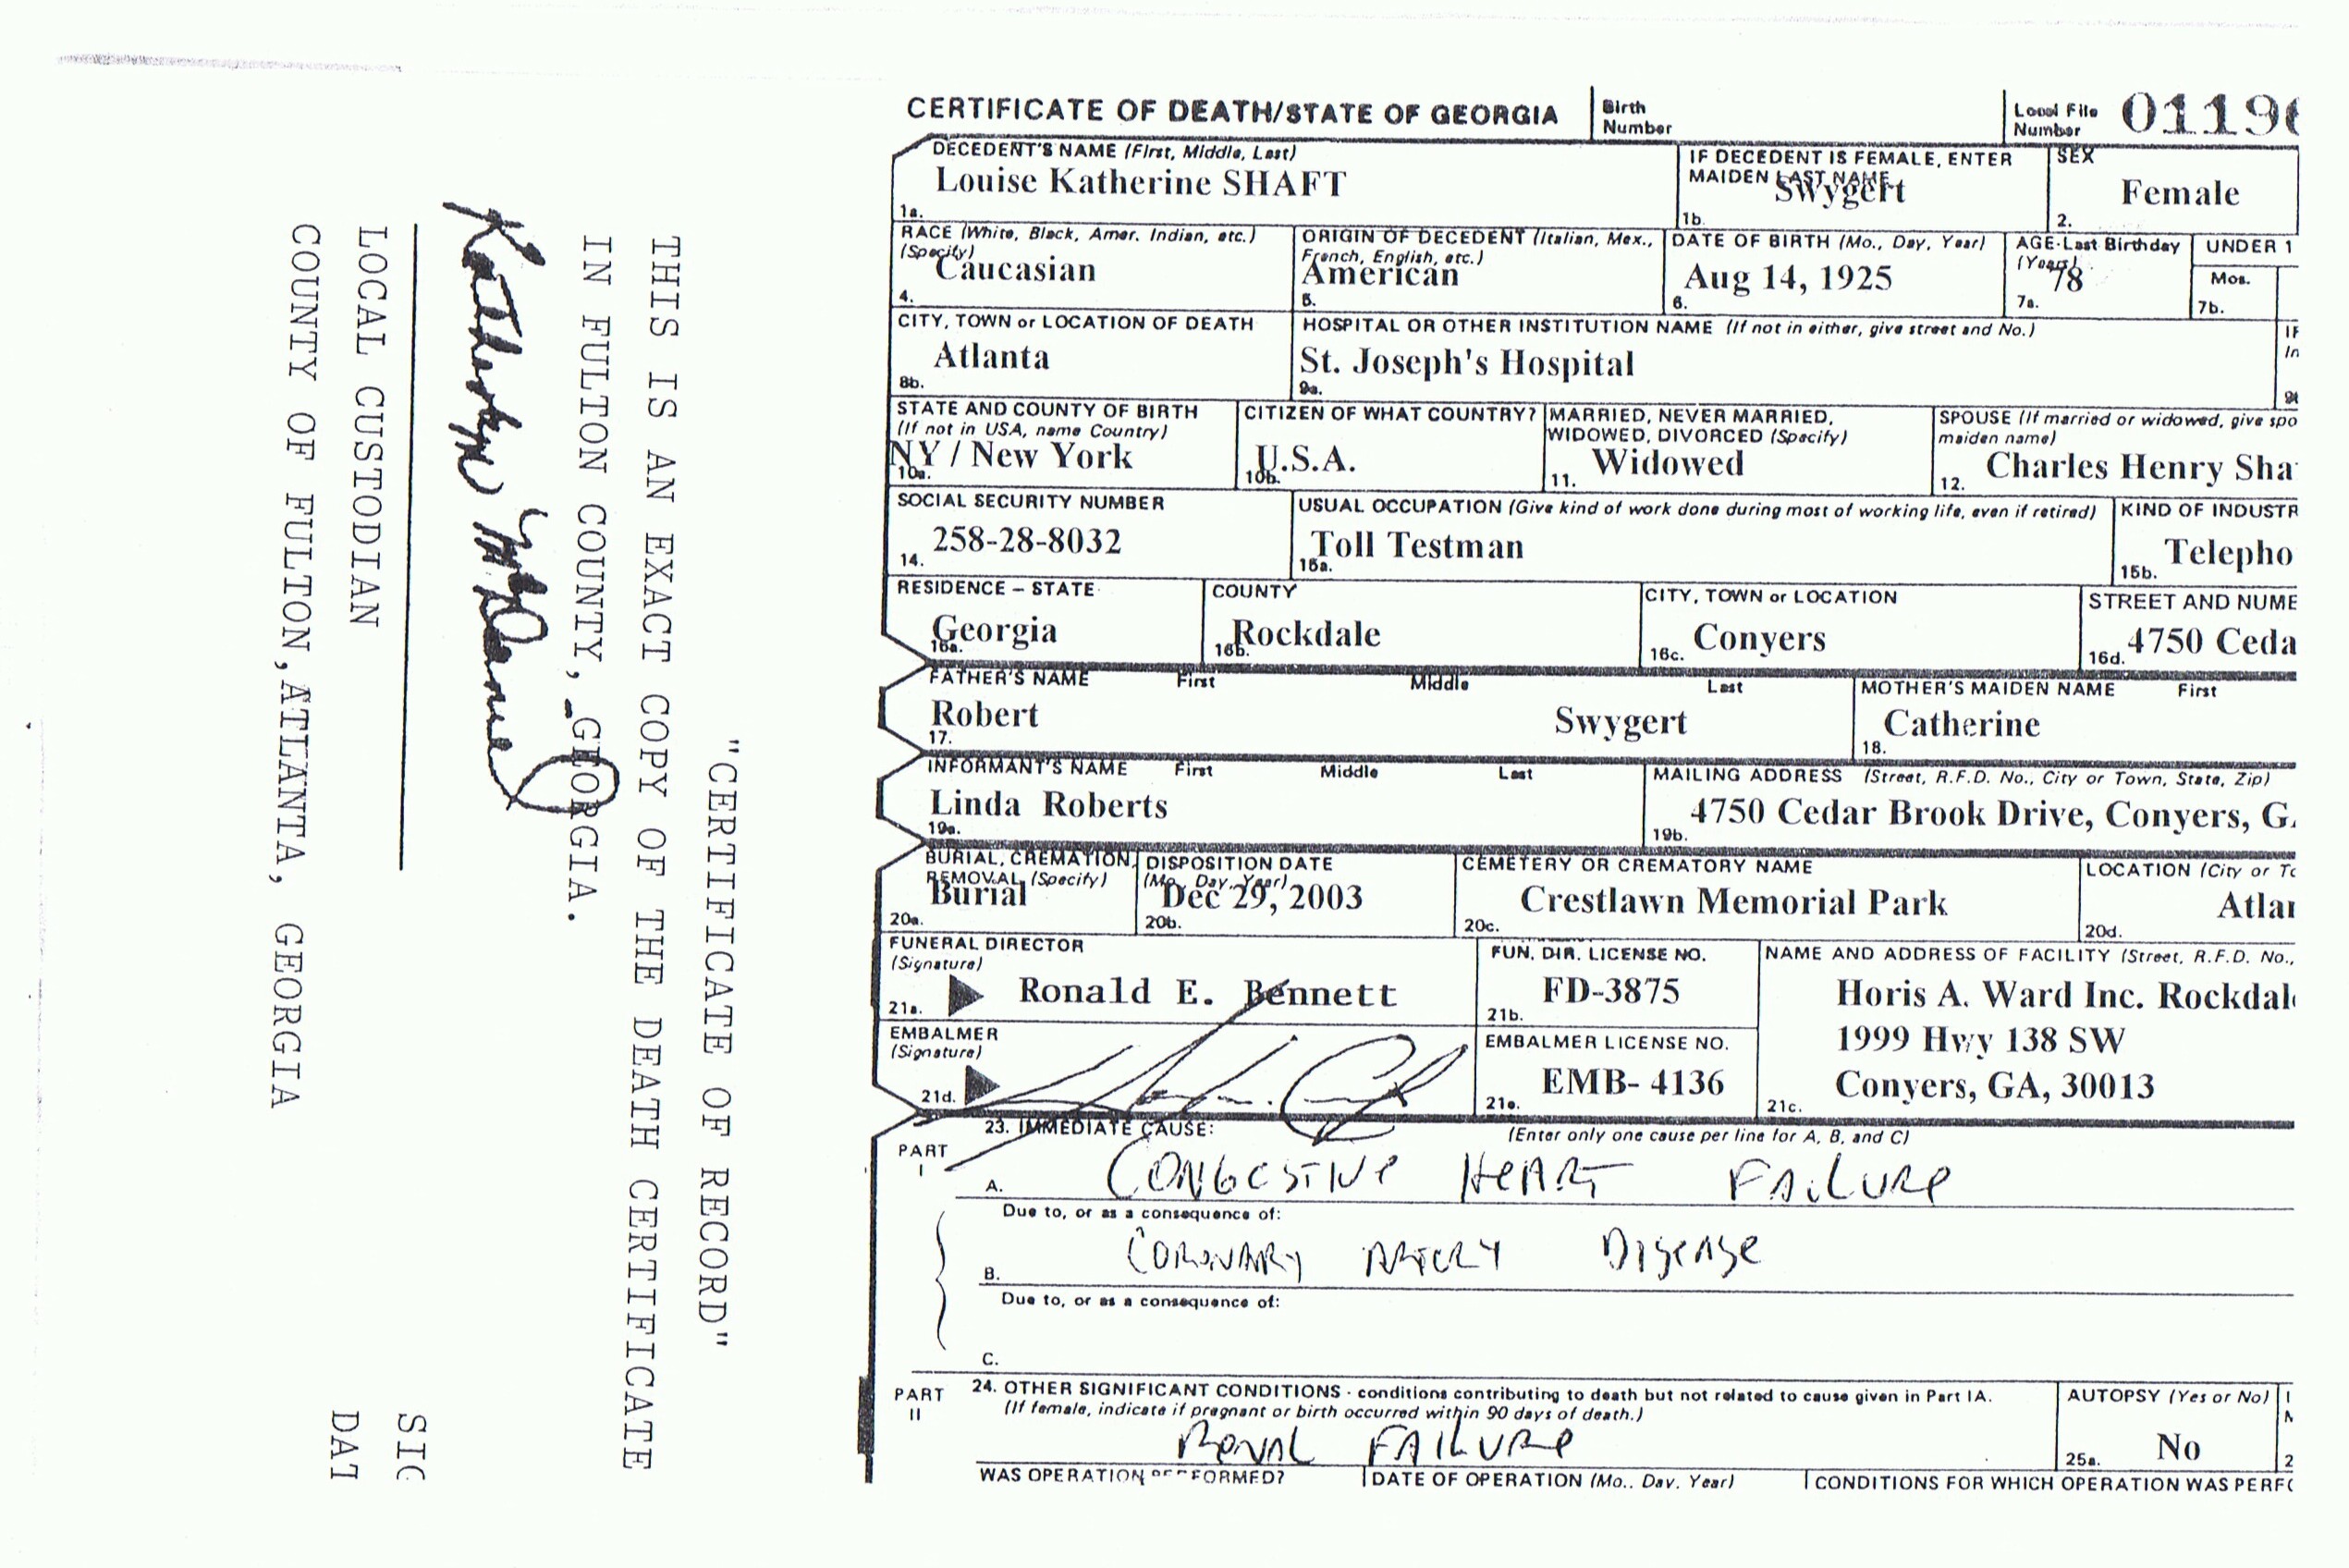 CERTIFICATE OF DEATH/STATE OF GEORGIA
Birth Number
Local File Number
DECEDENT'S NAME (First, Middle, Last)
Louise Katherine SHAFT
1a.
IF DECEDENT IS FEMALE, ENTER MAIDEN LAST NAME
Swygert
1b.
SEX
Female
2.
RACE (White, Black, Amer. Indian, etc.) (Specify)
Caucasian
4.
ORIGIN OF DECEDENT (Italian, Mex., French, English, etc.)
American
5.
DATE OF BIRTH (Mo., Day, Year)
Aug 14, 1925
6.
AGE-Last Birthday (Years)
78
7a.
UNDER 1
Mos.
7b.
CITY, TOWN or LOCATION OF DEATH
Atlanta
8b.
HOSPITAL OR OTHER INSTITUTION NAME (If not in either, give street and No.)
St. Joseph's Hospital
9a.
STATE AND COUNTY OF BIRTH (If not in USA, name Country)
NY / New York
10a.
CITIZEN OF WHAT COUNTRY?
U.S.A.
10b.
MARRIED, NEVER MARRIED, WIDOWED, DIVORCED (Specify)
Widowed
11.
SPOUSE (If married or widowed, give spo
maiden name)
Charles Henry Sha
12.
SOCIAL SECURITY NUMBER
258-28-8032
14.
USUAL OCCUPATION (Give kind of work done during most of working life, even if retired)
Toll Testman
15a.
KIND OF INDUSTR
Telepho
15b.
RESIDENCE – STATE
Georgia
16a.
COUNTY
Rockdale
16b.
CITY, TOWN or LOCATION
Conyers
16c.
STREET AND NUME
4750 Ceda
16d.
FATHER'S NAME First Middle Last
Robert Swygert
17.
MOTHER'S MAIDEN NAME First
Catherine
18.
INFORMANT'S NAME First Middle Last
Linda Roberts
19a.
MAILING ADDRESS (Street, R.F.D. No., City or Town, State, Zip)
4750 Cedar Brook Drive, Conyers, G
19b.
BURIAL, CREMATION, REMOVAL (Specify)
Burial
20a.
DISPOSITION DATE (Mo., Day, Year)
Dec 29, 2003
20b.
CEMETERY OR CREMATORY NAME
Crestlawn Memorial Park
20c.
LOCATION (City or To
Atlan
20d.
FUNERAL DIRECTOR (Signature)
Ronald E. Bennett
21a.
FUN. DIR. LICENSE NO.
FD-3875
21b.
NAME AND ADDRESS OF FACILITY (Street, R.F.D. No.,
Horis A. Ward Inc. Rockdal
1999 Hwy 138 SW
Conyers, GA, 30013
21c.
EMBALMER (Signature)
21d.
EMBALMER LICENSE NO.
EMB- 4136
21e.
PART I
23. IMMEDIATE CAUSE: (Enter only one cause per line for A, B, and C)
A. CONGESTIVE HEART FAILURE
Due to, or as a consequence of:
B. CORONARY ARTERY DISEASE
Due to, or as a consequence of:
C.
PART II
24. OTHER SIGNIFICANT CONDITIONS - conditions contributing to death but not related to cause given in Part IA.
(If female, indicate if pregnant or birth occurred within 90 days of death.)
RENAL FAILURE
AUTOPSY (Yes or No)
No
25a.
WAS OPERATION PERFORMED?
DATE OF OPERATION (Mo., Day, Year)
CONDITIONS FOR WHICH OPERATION WAS PERFO
"CERTIFICATE OF RECORD"
THIS IS AN EXACT COPY OF THE DEATH CERTIFICATE
IN FULTON COUNTY, GEORGIA.
LOCAL CUSTODIAN
COUNTY OF FULTON, ATLANTA, GEORGIA
SIG
DAT